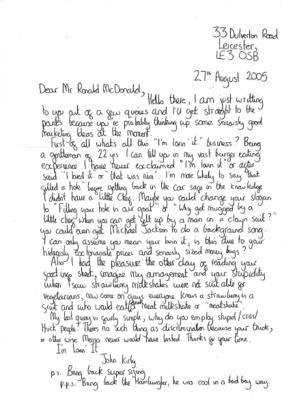 33 Dulverton Road
Leicester,
LE3 0SB
27th August 2005
Dear Mr Ronald McDonald,
Hello there, I am just writting
to you put of a few queries and I'll get straight to the
points because you're probably thinking up some seriously good
marketing ideas at the moment.
First of all whats all this "I'm lovin' it" business? Being
a gentleman of 22 yrs I can tell you in my vast burger eating
experience I have never exclaimed "I'm lovin' it" or after
said "I loved it" or "that was nice". I'm more likely to say "that
filled a hole" before getting back in the car safe in the knowledge
I didn't have a "Little Chef". Maybe you could change your slogan
to "Filling your hole in air great" or "Why get mugged by a
little chef when you can get left up by a man in a clown suit?"
you could even get Michael Jackson to do a background song.
I can only assume you mean your lovin it, is this due to your
hideously exclusionate prices and seriously sized money bags?
Also I had the pleasure the other day of reading your
food ings sheet, imagine my amazement and your stupidity
when I saw strawberry milkshakes were not suitable for
vegetarians, now come on guys everyone knows a strawberry is a
fruit and who would want meat milkshake or "meatshake".
My last query is fairly simple, why do you employ stupid / cross/
thick people? Theres no such thing as discrimination because your thick,
or other wise Mensa would never have lasted. Thanks for your time.
I'm Lovin' It
John Kirby
p.s. Bring back super sizing
p.p.s. Bring back the Hamburglar, he was cool in a bad boy way.